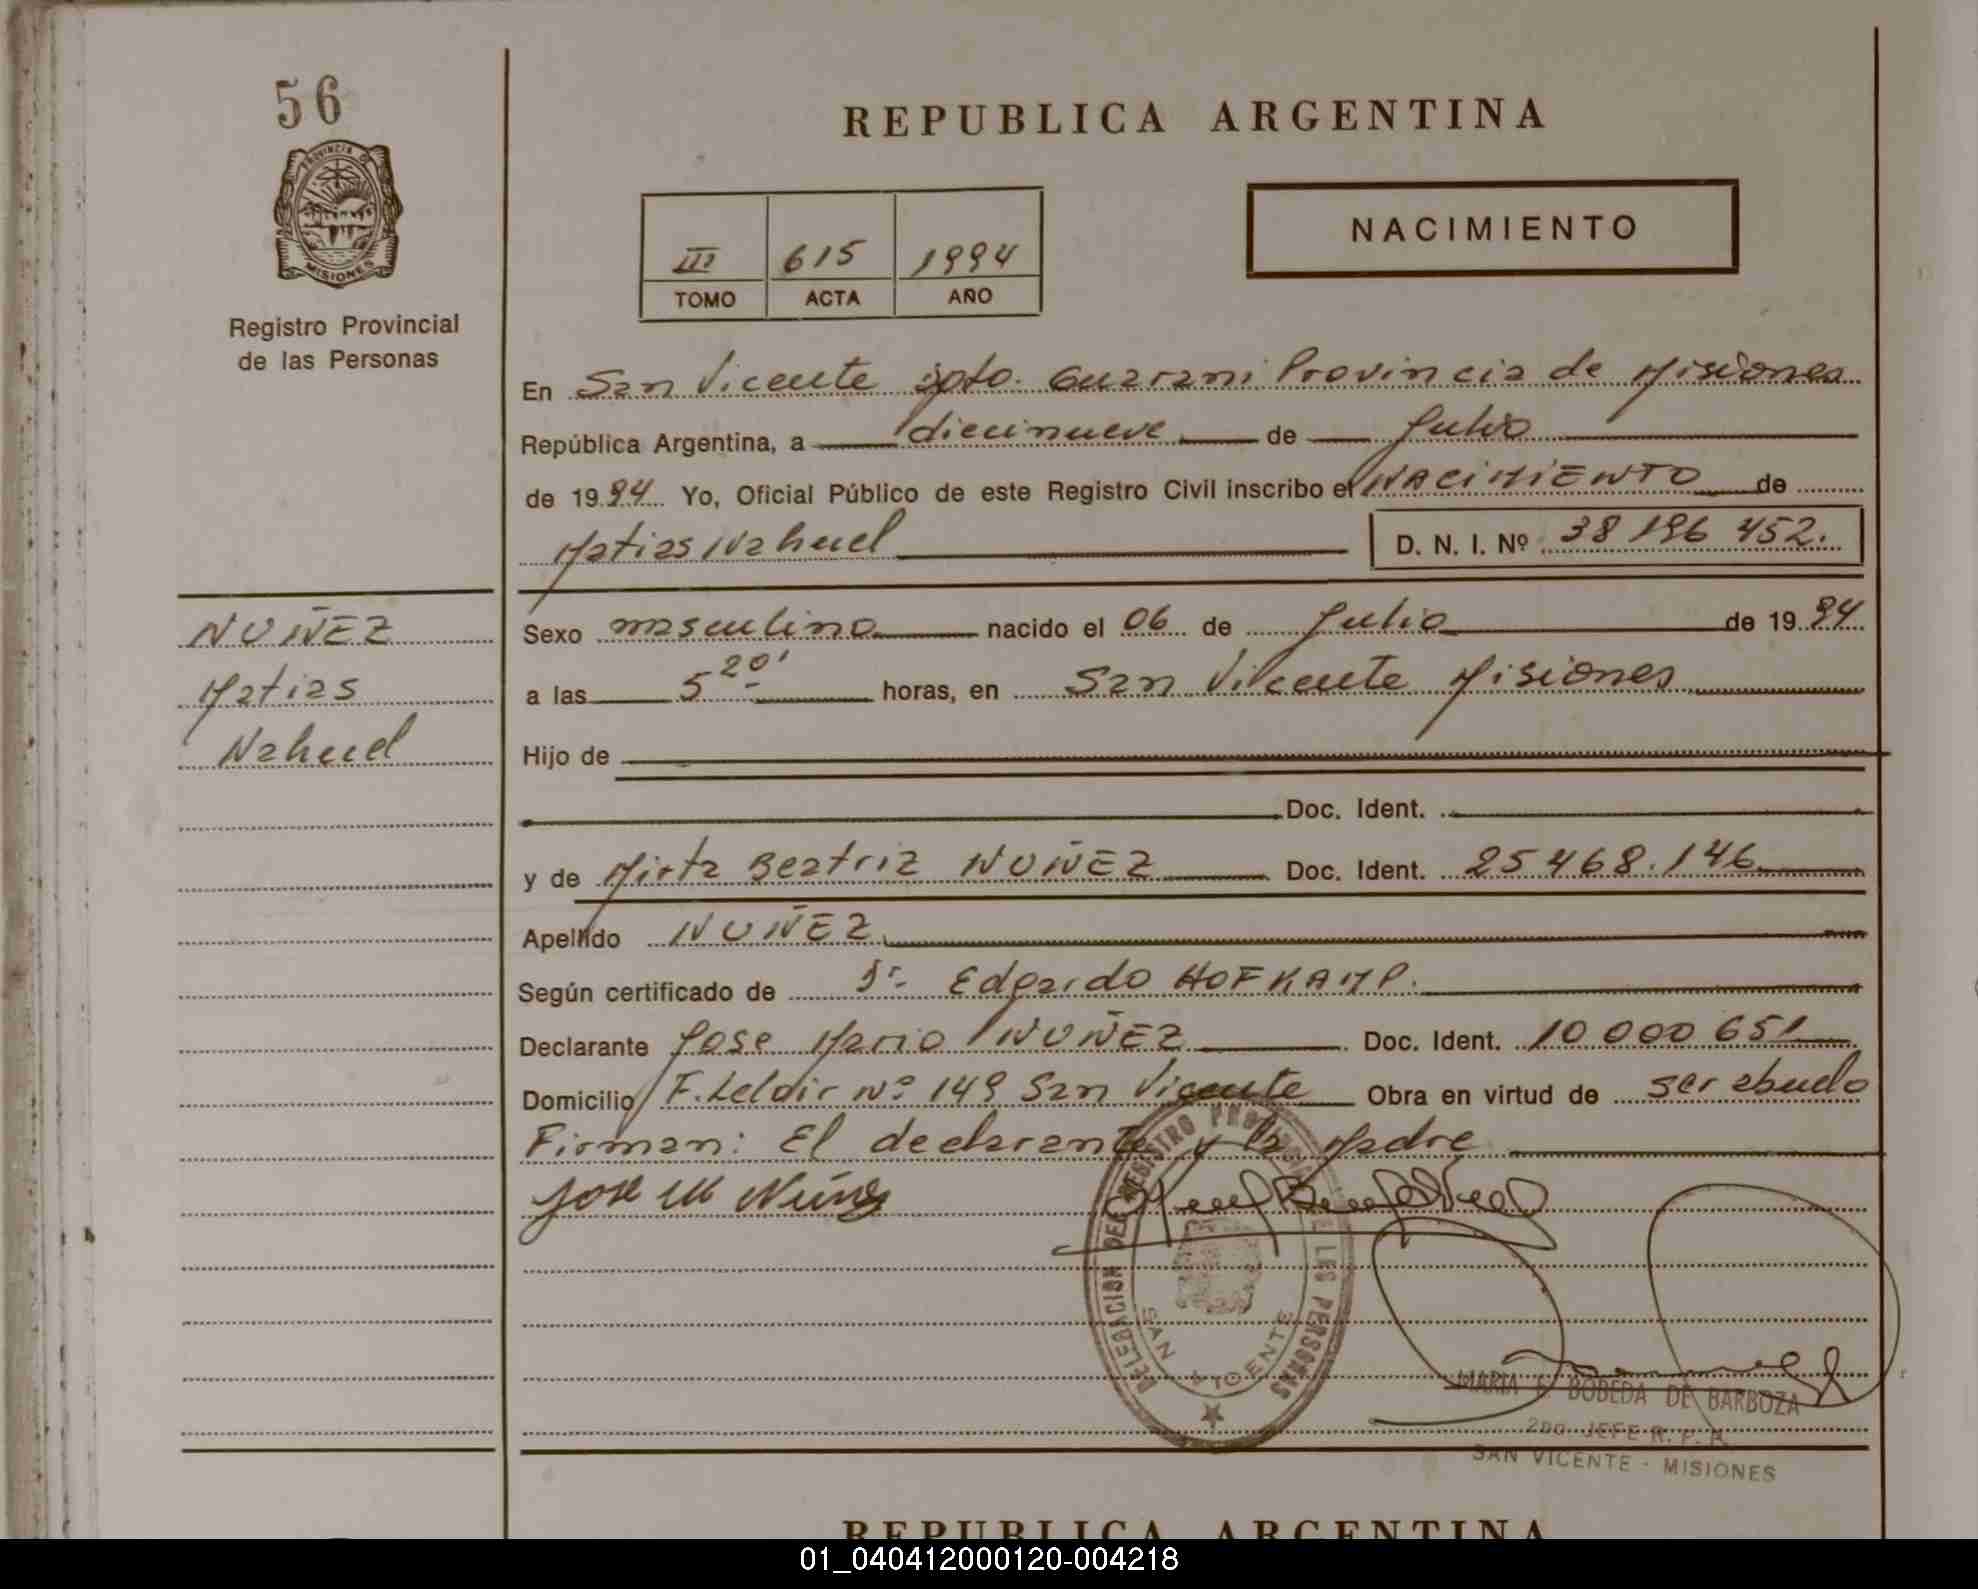 56
PROVINCIA DE
MISIONES
Registro Provincial
de las Personas
REPUBLICA ARGENTINA
III 615 1994
TOMO ACTA AÑO
NACIMIENTO
En San Vicente Dpto. Guarani Provincia de Misiones
República Argentina, a diecinueve de Julio
de 1994 Yo, Oficial Público de este Registro Civil inscribo el NACIMIENTO de
Matias Nahuel D. N. I. Nº 38 196 452.
NUÑEZ
Matias
Nahuel
Sexo masculino nacido el 06 de Julio de 1994
a las 5 20' horas, en San Vicente Misiones
Hijo de
Doc. Ident.
y de Mirta Beatriz NUÑEZ Doc. Ident. 25468.146
Apellido NUÑEZ
Según certificado de Dr. Edgardo HOFKAMP.
Declarante Jose Mario NUÑEZ Doc. Ident. 10 000 651
Domicilio F. Leloir Nº 149 San Vicente Obra en virtud de ser abuelo
Firman: El declarante y la Madre
Jose M Núñez
DELEGACION DEL REGISTRO PROVINCIAL DE LAS PERSONAS
SAN VICENTE
MARIA BOBEDA DE BARBOZA
2DO. JEFE R. P. P.
SAN VICENTE - MISIONES
REPUBLICA ARGENTINA
01_040412000120-004218